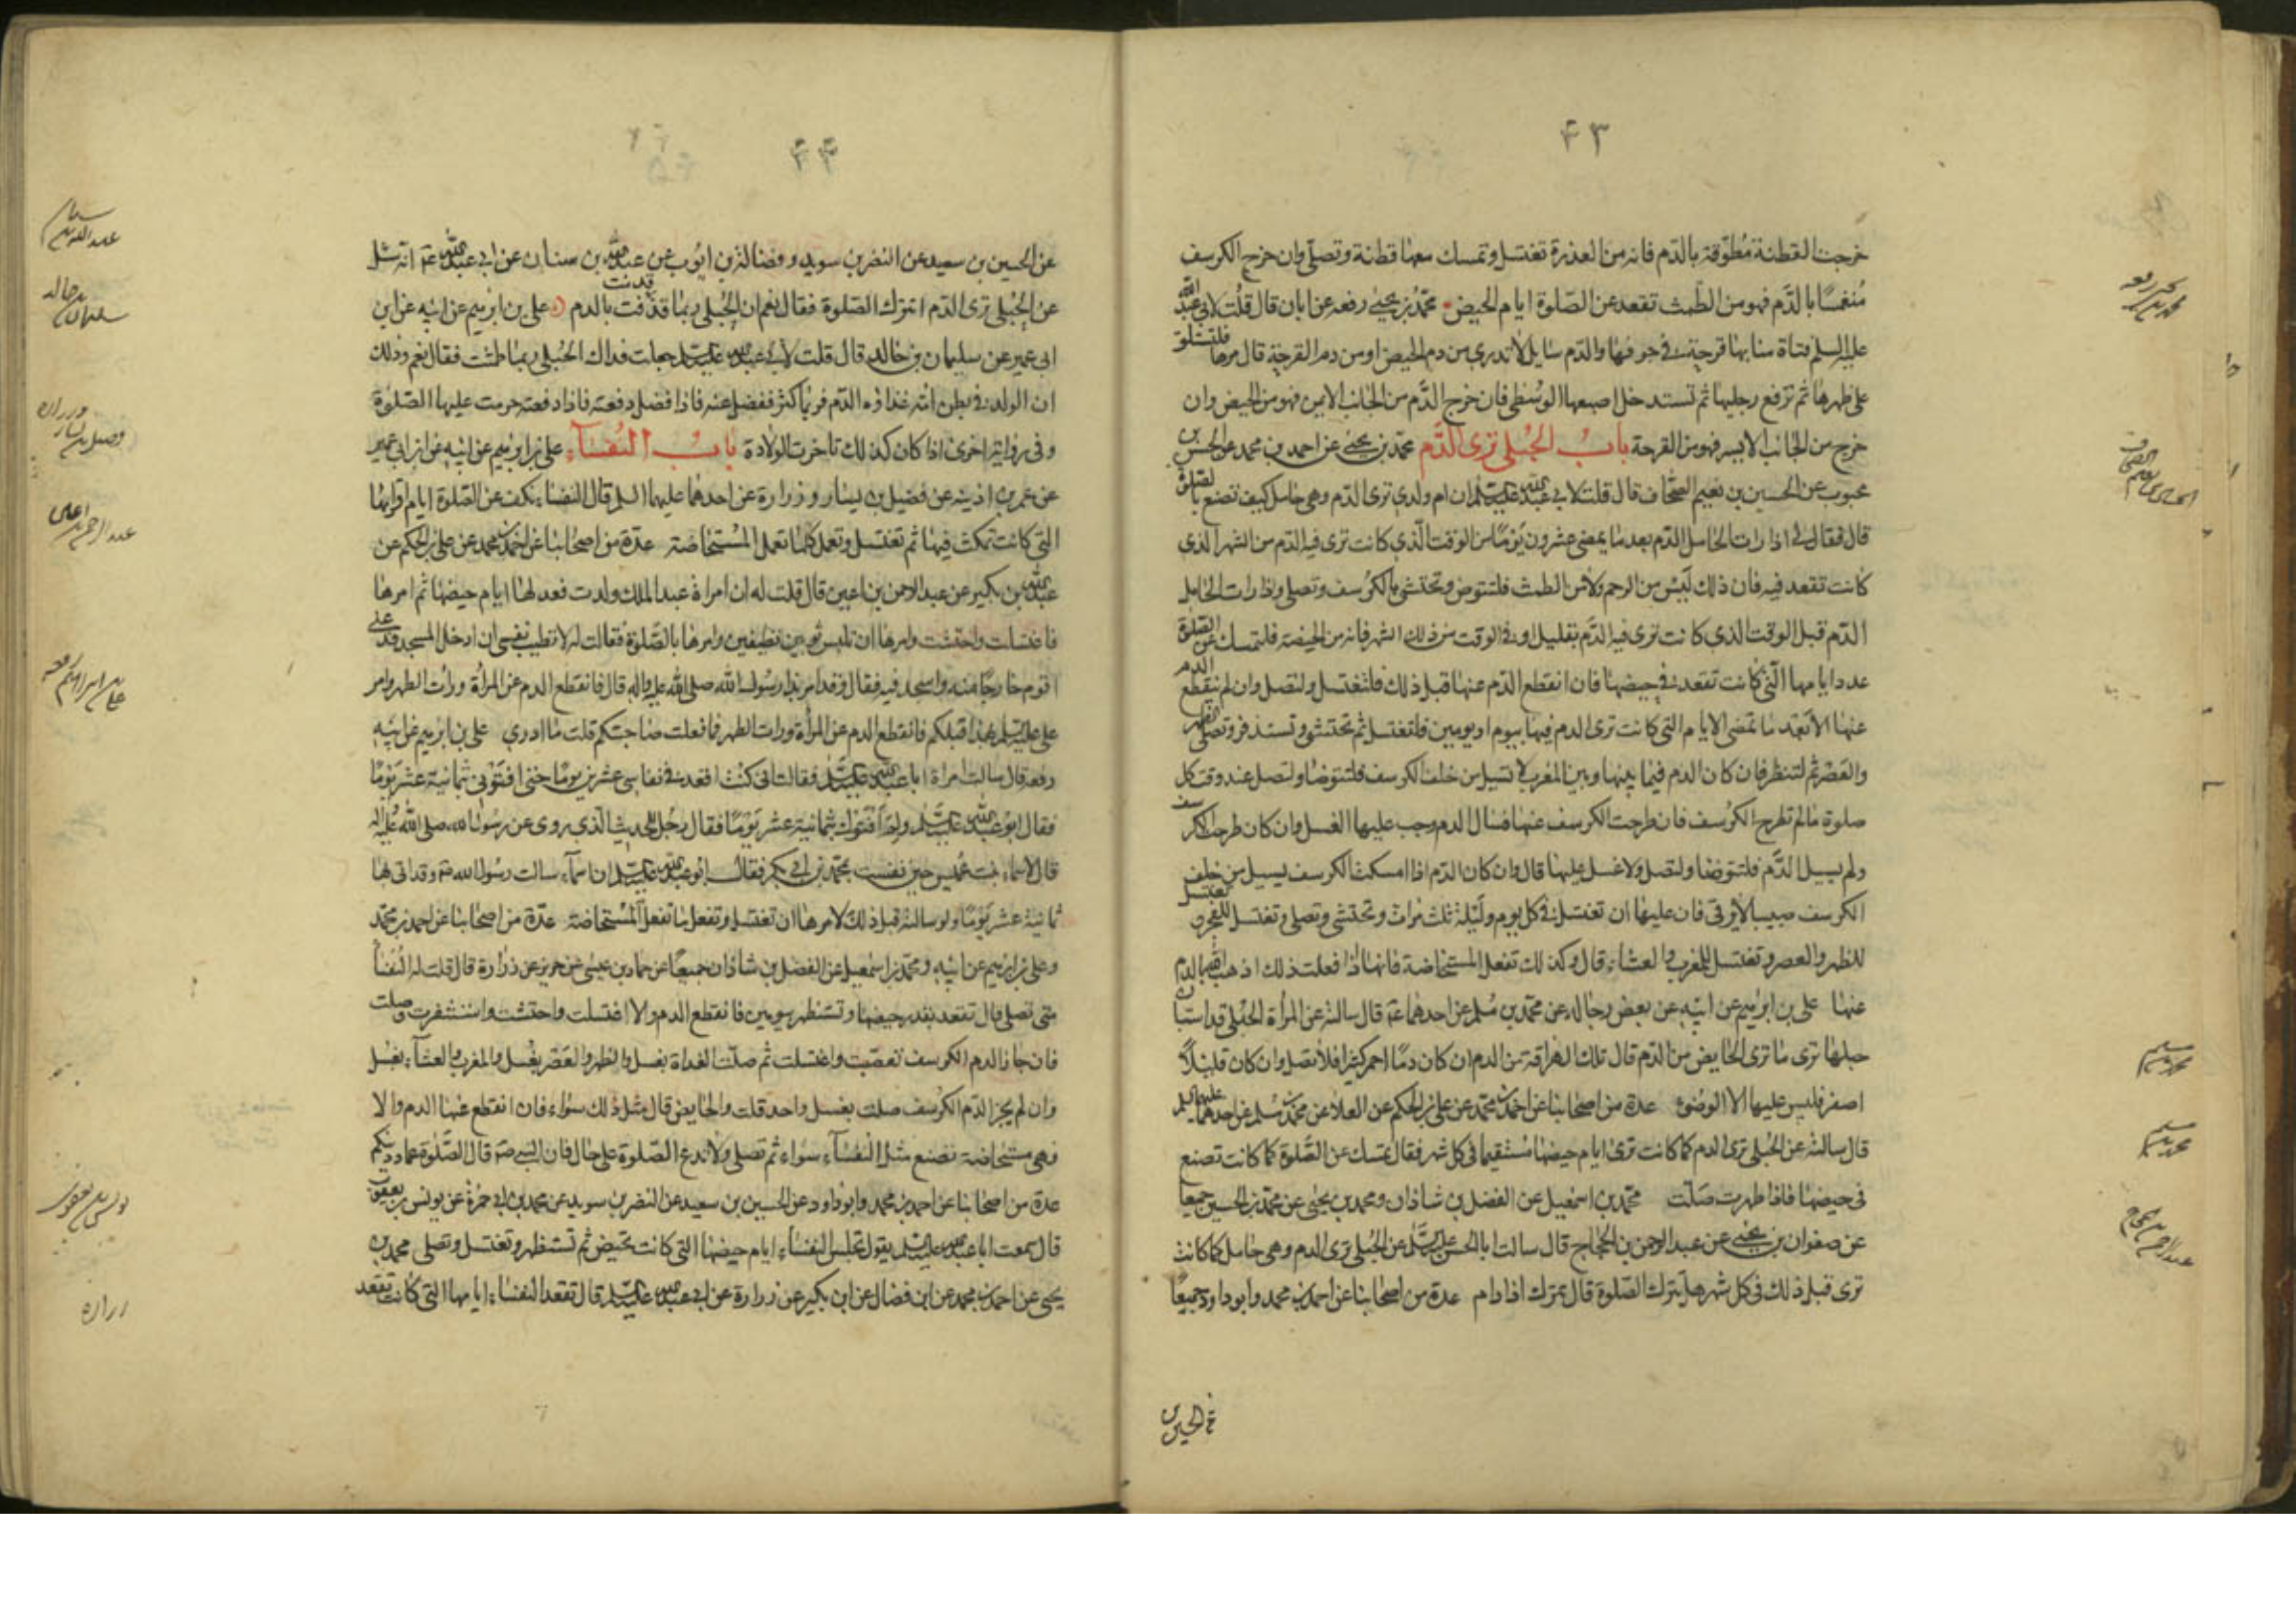 ۴۳
خرجت القطنة مُطوّقة بالدّم فانه من العذرة تغتسل وتمسك معها قطنة وتصلّي وان خرج الكرسف
مُنغمسًا بالدَّم فهو من الطّمث تقعد عن الصّلوة ايام الحيض محمّد بن يحيى رفعه عن ابان قال قلُت لابي عبد الله
عليه السلم فتاة منا بها قرحة في جوفها والدّم سايل لا تدري من دم الحيض او من دم القرحة قال مرها فلتستلق
على ظهرها ثم ترفع رجليها ثم تستدخل اصبعها الوُسْطى فان خرج الدَّم من الجانب الايمن فهو من الحيض وان
خرج من الجانب الايسر فهو من القرحة بابُ الحُبْلى ترى الدَّم محمّد بن يحيى عن احمد بن محمد عن الحسن بن
محبوب عن الحسين بن نعيم الصحّاف قال قلت لابي عبد الله عليه السلم ان ام ولدي ترى الدّم وهي حامل كيف تصنع بالصّلوة
قال فقال لي اذا رات الحامل الدّم بعد ما يمضي عشرون يَوْمًا من الوقت الّذي كانت ترى فيه الدّم من الشهر الذي
كانت تقعد فيه فان ذلك لَيْسَ من الرحم ولا من الطمث فلتتوض وتحتشي بالكرْسف وتصلي واذا رات الحامل
الدّم قبل الوقت الذي كانت ترى فيه الدَّم بقليل او في الوقت من ذلك الشهر فانه من الحيضة فلتمسك عن الصّلوة
عدد ايامها الّتي كانت تقعد في حيضها فان انقطع الدّم عنها قبل ذلك فلتغتسل ولتصل وان لم ينقطع الدم
عنها الا بَعْد ما تمضي الايام التي كانت ترى الدم فيها بيوم او يومين فلتغتسل ثم تحتشي وتستذفر وتصلي الظهر
والعَصْر ثم لتنظر فان كان الدم فيما بينها وبين المغرب لا تسيل من خلف الكرسف فلتتوضا ولتصل عند وقت كل
صلوة ما لم تطرح الكرُسف فان طرحت الكرسف عنها فسال الدم وجب عليها الغسل وان كان طرحت الكرسف
ولم يسيل الدَّم فلتتوضا ولتصل ولا غسل عليها قال وان كان الدّم اذا امسكت الكرسف يسيل من خلف
الكرسف صبيبا لا يرقى فان عليها ان تغتسل في كل يوم ولَيْلة ثلث مرات وتحتشي وتصلي وتغتسل للفجر وتغتسل
للظهر والعصر وتغتسل للمغرب والعشاء قال وكذلك تفعل المستحاضة فانها اذا فعلت ذلك اذهب الله بالدم
عنها على بن ابرهيم عن ابيه عن بعض رجاله عن محمّد بن مُسلم عن احدهما ع قال سالته عن المرأة الحبْلى قد استبان
حبلها ترى ما ترى الحايض من الدّم قال تلك الهراقة من الدم ان كان دمًا احمر كثيرا فلا تصل وان كان قليلًا
اصفر فليس عليها الا الوضوء عدة من اصحابنا عن احمد بن محمّد عن علي بن الحكم عن العلا عن محمّد بن مُسلم عن احدهما عليهما السلم
قال سالته عن الحُبلى ترى الدم كما كانت ترى ايام حيضها مُسْتقيما في كل شهر فقال تمسك عن الصَّلوة كما كانت تصنع
في حيضها فاذا طهرت صَلّت محمّد بن اسمعيل عن الفضل بن شاذان ومحمد بن يحيى عن محمّد بن الحسين جميعا
عن صفوان بن يحيى عن عبد الرحمن بن الحجّاج قال سالت ابا الحسن عليه السّلم عن الحُبلى ترى الدم وهي حامل كما كانت
ترى قبل ذلك في كل شهر هل تترك الصّلوة قال تترك اذا دام عدة من اصحابنا عن احمد بن محمد وابو داود جميعًا
عن الحسين
محمد بن يحيى رفعه
الحسين بن نعيم الصحاف
محمد بن مسلم
محمد بن مسلم
عبد الرحمن بن حجاج
۴۴
عن الحسين بن سعيد عن النضر بن سويد وفضالة بن ايّوب عن عبد الله بن سنان عن ابي عبد الله ع انه سئل
عن الحُبْلى ترى الدّم اتترك الصّلوة فقال نعم ان الحُبْلى ربما قذفت بالدم على بن ابرهيم عن ابيه عن ابن
ابي عمير عن سليمان بن خالد قال قلت لابي عبد الله عليه السلم جعلت فداك الحُبْلى ربما طمثت فقال نعم وذلك
ان الولد في بطن امّه غذاؤه الدّم فربما كثر ففضل عنه فاذا فضل دفعته فاذا دفعته حرمت عليها الصّلوة
وفي رواية اخرى اذا كان كذلك تاخرت الولادة بابُ النُفَسَآء على بن ابرهيم عن ابيه عن ابن ابي عمير
عن عمر بن اذينة عن فضيل بن يسار وزرارة عن احدهما عليهما السلم قال النفساء تكف عن الصّلوة ايام اقرائها
التي كانت تمكث فيها ثم تغتسل وتعمل كما تعمل المُسْتحاضة عدّة من اصحابنا عن احمد بن محمد عن علي بن الحكم عن
عبد الله بن بكير عن عبد الرحمن بن اعين قال قلت له ان امراة عبد الملك ولدت فعد لها ايام حيضها ثم امرها
فاغتسلت واحتشت وامرها ان تلبس ثوبين نظيفين وامرها بالصّلوة فقالت له لا تطيب نفسي ان ادخل المسجد فدعني
اقوم خارجًا منه واسجد فيه فقال قد امر بذا رسول الله صلى الله عليه واله قال فانقطع الدم عن المرأة ورات الطهر وامر
على عليه السّلم بهذا قبلكم فانقطع الدم عن المرأة ورات الطهر فما فعلت صاحبتكم قلت ما ادري على بن ابرهيم عن ابيه
رفعه قال سالت امراة ابا عبد الله عليه السّلم فقالت اني كُنْت اقعد في نفاسي عشرين يومًا حتى افتَوْني ثمانية عشر يَوْمًا
فقال ابو عبد الله عليه السّلم ولِمَ اَفتَوْك بثمانية عشر يَوْمًا فقال رجُل للحديث الّذي روى عن رسُول الله صلى الله عليه واله
قال لاسماء بنت عُميس حين نفست بمحمّد بن ابي بكر فقال ابو عبد الله عليه السلم ان اسمآء سالت رسُول الله ص وقد اتى لها
ثمانية عشر يَوْمًا ولو سالته قبل ذلك لامرها ان تغتسل وتفعل ما تفعل المُسْتحاضة عدّة من اصحابنا عن احمد بن محمّد
وعلى بن ابرهيم عن ابيه ومحمّد بن اسمعيل عن الفضل بن شاذان جميعًا عن حماد بن عيسى عن حريز عن زرارة قال قلت له النُفَسآء
متى تصلي قال تقعد بقدر حيضها وتستظهر بيومين فانقطع الدم والا اغتسلت واحتشت واستثفرت وصلت
فان جاز الدم الكرسف تعصّبت واغتسلت ثم صلّت الغداة بغسل والظهر والعَصْر بغُسل والمغرب والعشآء بغسْل
وان لم يجز الدّم الكرْسف صلت بغسل واحد قلت والحايض قال مثل ذلك سَواء فان انقطع عنها الدم والا
فهي مستحاضة تصنع مثل النُفسآء سَواء ثم تصلي ولا تدع الصّلوة على حال فان النبي ص قال الصَّلوة عماد دينكم
عدة من اصحابنا عن احمد بن محمد وابو داود عن الحسين بن سعيد عن النضر بن سويد عن محمد بن ابي حمزة عن يونس بن يعقوب
قال سمعت ابا عبد الله عليه السّلم يقول تجلس النفسَاء ايام حيضها التي كانت تحيض ثم تستظهر وتغتسل وتصلي محمد بن
يحيى عن احمد بن محمد عن ابن فضال عن ابن بكير عن زرارة عن ابي عبد الله عليه السّلم قال تقعد النفسَاء ايامها التي كانت تقعد
عبد الله بن سنان
سليمان بن خالد
فضيل بن يسار وزراره
عبد الرحمن بن اعين
على بن ابراهيم رفعه
يونس بن يعقوب
زراره